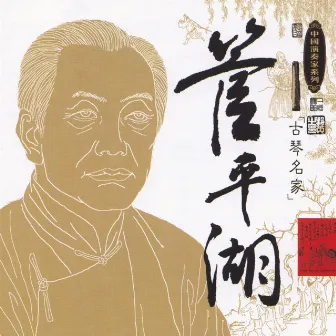 中國演奏家系列
管平湖
「古琴名家」